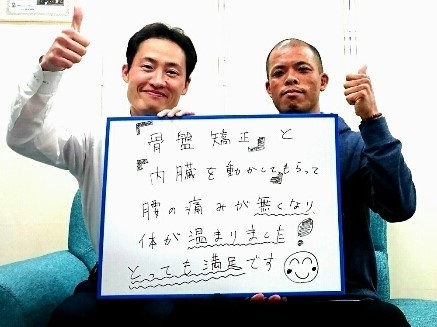 『骨盤矯正』と
『内臓を動かして』もらって
腰の痛みが無くなり、
体が温まりました!
とっても満足です